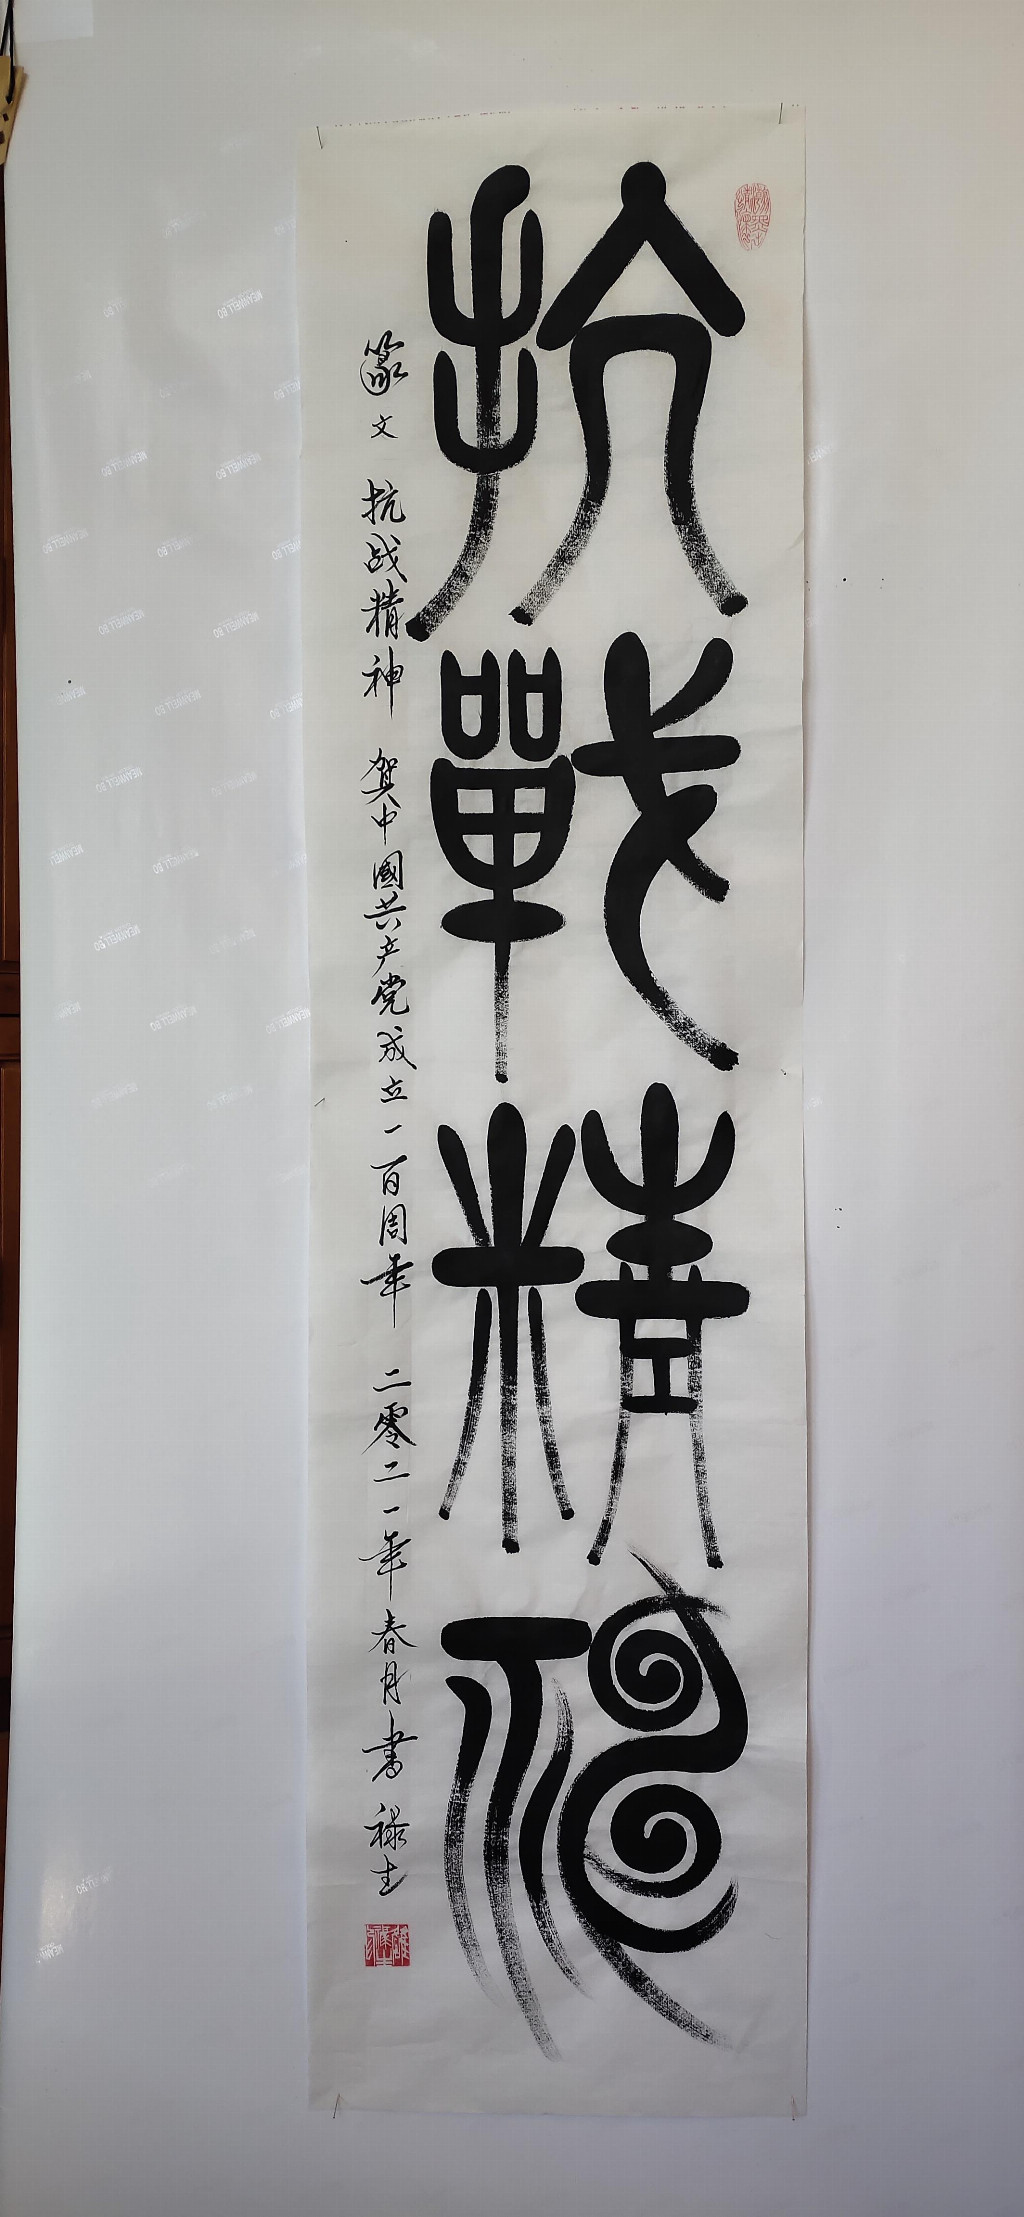 抗戰精神
篆文 抗战精神 贺中國共产党成立一百周年 二零二一年春月书 禄生